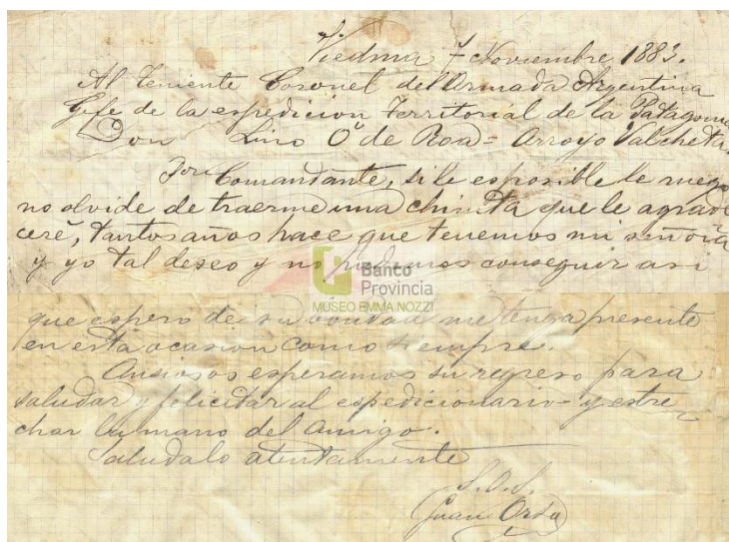 Viedma 7 Noviembre, 1883.
Al Teniente Coronel del Armada Argentina
Gefe de la espedicion Territorial de la Patagonia
Don Lino O. de Roa = Arroyo Valcheta.
Comandante, si le es posible le ruego
no olvide de traerme una chinita que le agrade
ceré, tantos años hace que tenemos mi señora
y yo tal deseo y no podemos conseguir asi
Banco
Provincia
MUSEO EMMA NOZZI
que espero de su bondad me tenga presente
en esta ocasion como siempre.
Ansiosos esperamos su regreso para
saludar y felicitar al espedicionario y estre
char la mano del amigo.
Saludalo atentamente
S.S.S.
Juan